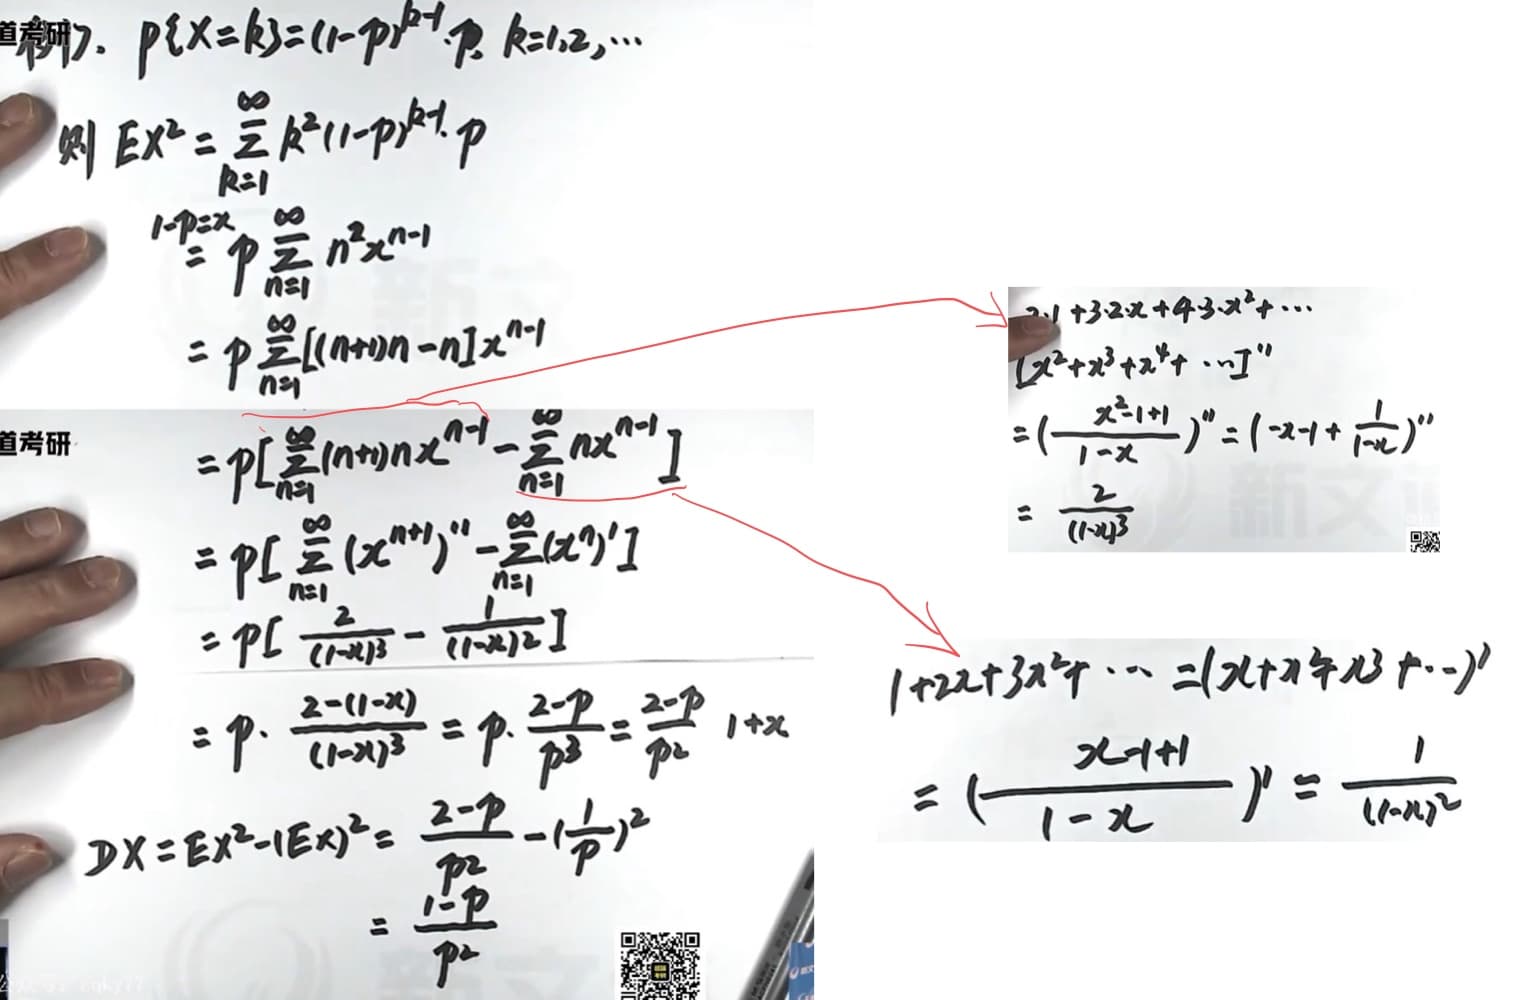 道考研
例7. P{X=k}=(1-p)^{k-1}·p, k=1,2,…
则 EX²=∑_{k=1}^{∞} k²(1-p)^{k-1}·p
1-p=x
= p∑_{n=1}^{∞} n²x^{n-1}
= p∑_{n=1}^{∞}[(n+1)n-n]x^{n-1}
道考研
= p[∑_{n=1}^{∞}(n+1)nx^{n-1}-∑_{n=1}^{∞}nx^{n-1}]
= p[∑_{n=1}^{∞}(x^{n+1})''-∑_{n=1}^{∞}(x^n)']
= p[\frac{2}{(1-x)³}-\frac{1}{(1-x)²}]
= p·\frac{2-(1-x)}{(1-x)³}=p·\frac{2-p}{p³}=\frac{2-p}{p²} 1+x
DX=EX²-(EX)²=\frac{2-p}{p²}-(\frac{1}{p})²
= \frac{1-p}{p²}
2·1+3·2·x+4·3·x²+…
[x²+x³+x⁴+…]''
=(\frac{x²-1+1}{1-x})''=(-x-1+\frac{1}{1-x})''
= \frac{2}{(1-x)³}
新文道
1+2x+3x²+…=(x+x²+x³+…)'
=(\frac{x-1+1}{1-x})'=\frac{1}{(1-x)²}